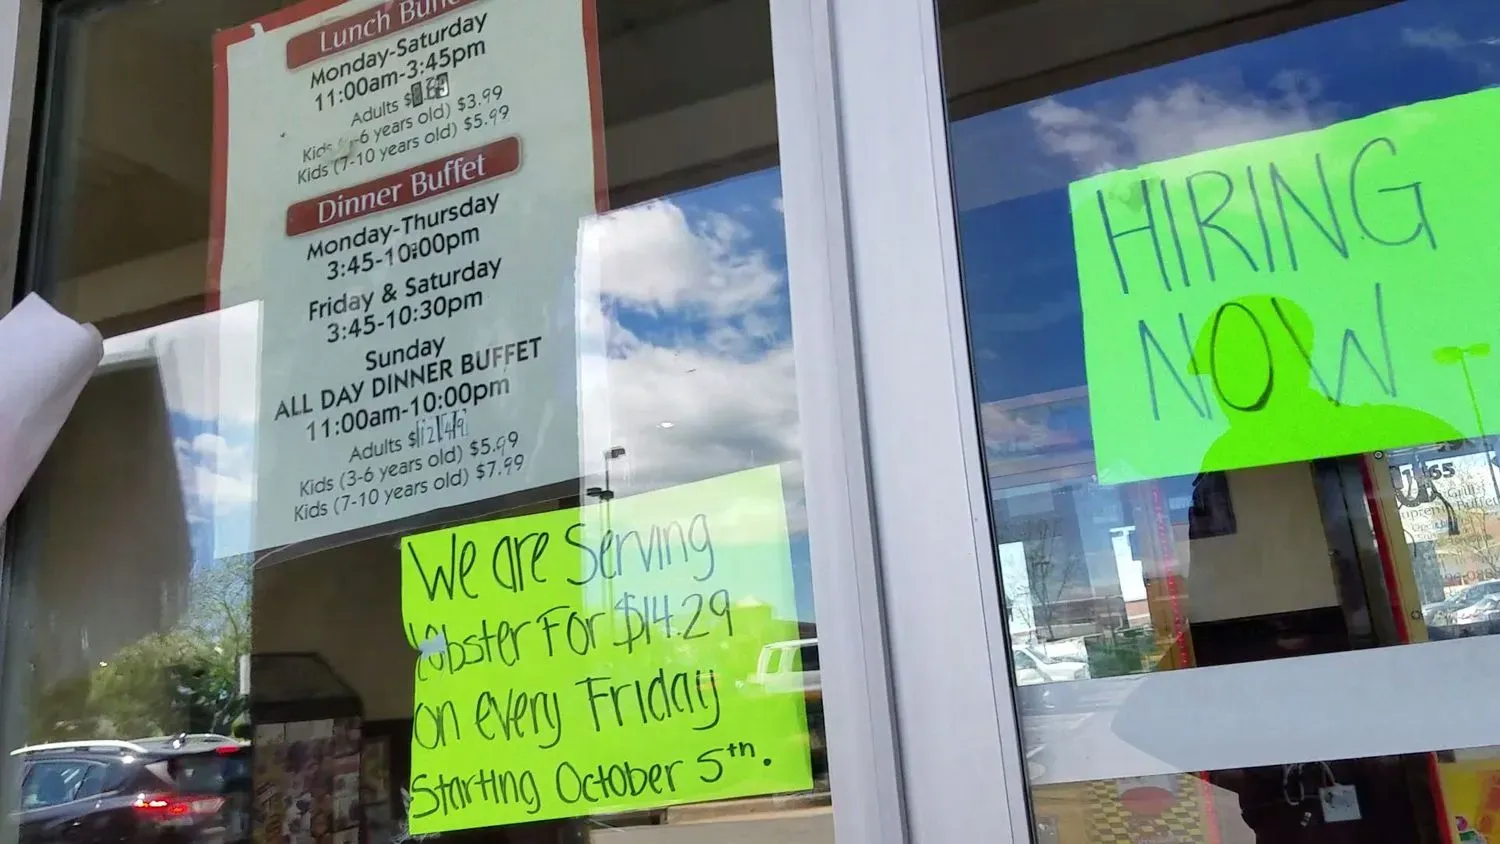 Lunch Buffet
Monday-Saturday
11:00am-3:45pm
Adults $
Kids -6 years old) $3.99
Kids (7-10 years old) $5.99
Dinner Buffet
Monday-Thursday
3:45-10:00pm
Friday & Saturday
3:45-10:30pm
Sunday
ALL DAY DINNER BUFFET
11:00am-10:00pm
Adults $12.49
Kids (3-6 years old) $5.99
Kids (7-10 years old) $7.99
We are Serving
lobster For $14.29
on every Friday
Starting October 5th.
HIRING
NOW